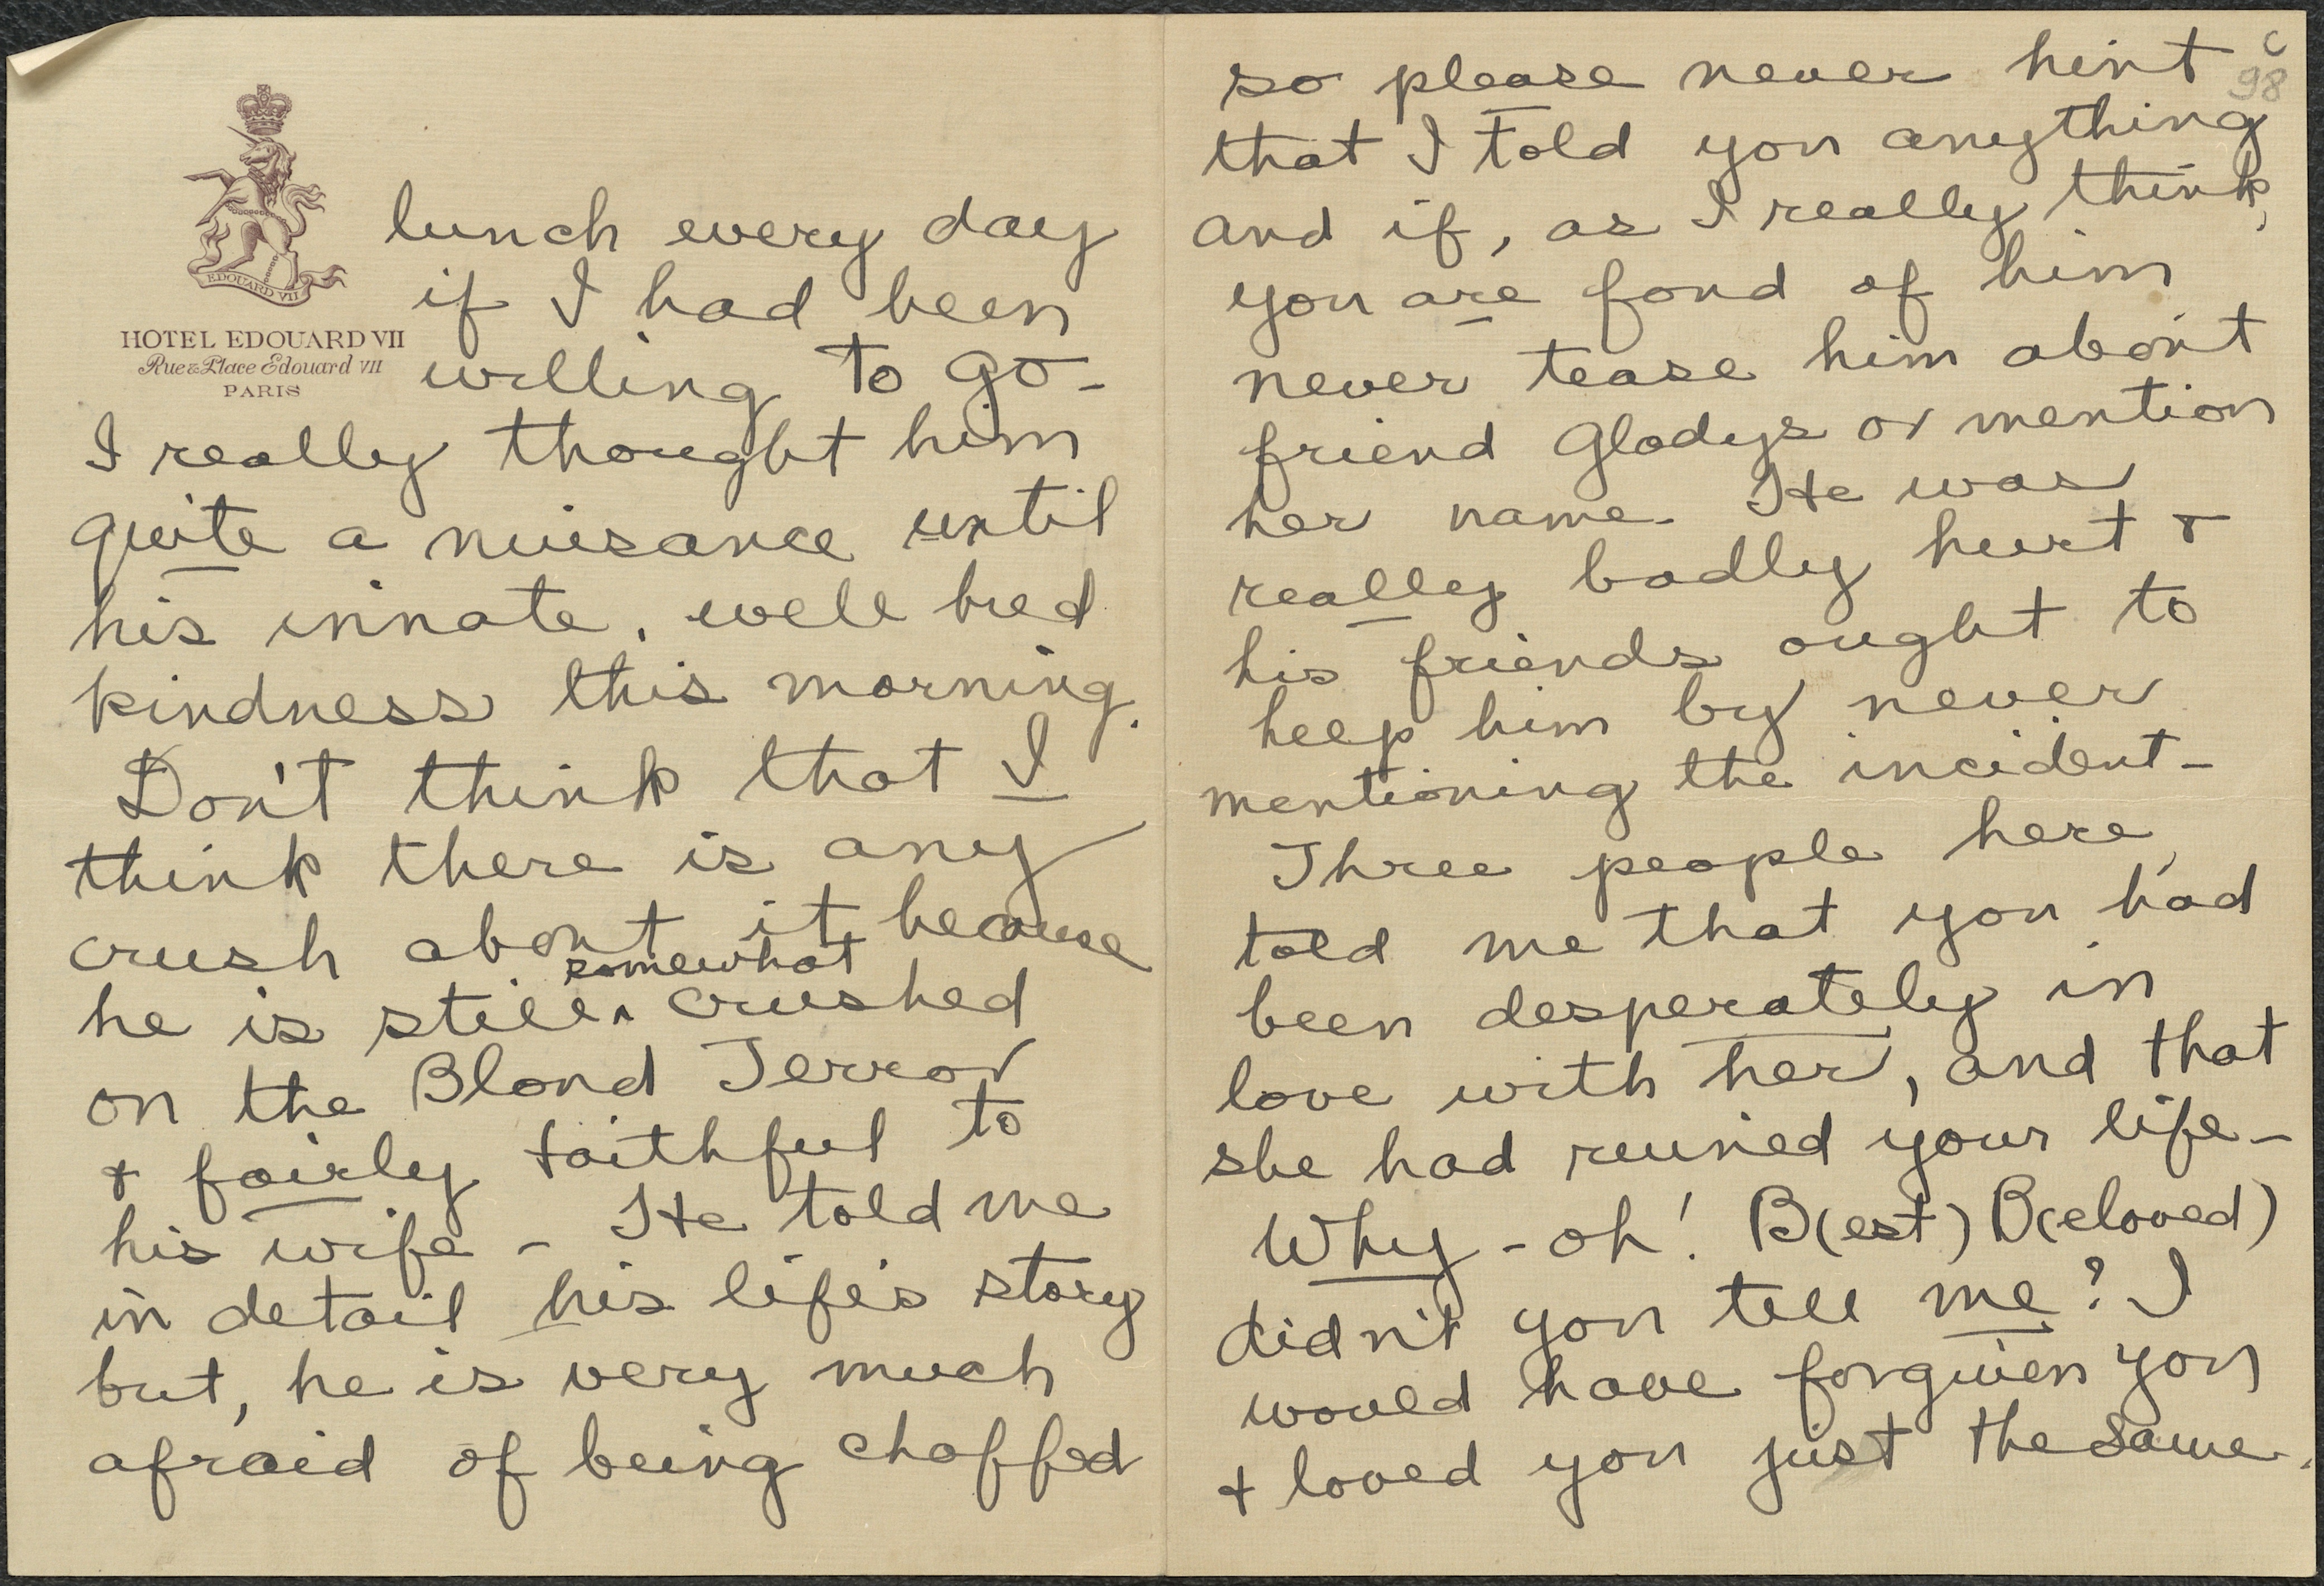 EDOUARD VII
HOTEL EDOUARD VII
Rue & Place Edouard VII
PARIS
lunch every day
if I had been
willing to go -
I really thought him
quite a nuisance until
his innate, well bred
kindness this morning.
Don't think that I
think there is any
crush about it because
he is still ^ somewhat crushed
on the Blond Terror
& fairly faithful to
his wife - He told me
in detail his life's story
but, he is very much
afraid of being chaffed
c
98
so please never hint
that I told you anything
and if, as I really think,
you are fond of him
never tease him about
friend Gladys or mention
her name. He was
really badly hurt &
his friends ought to
help him by never
mentioning the incident -
Three people here,
told me that you had
been desperately in
love with her, and that
she had ruined your life -
Why - oh! B(est) B(eloved)
didn't you tell me? I
would have forgiven you
& loved you just the same.